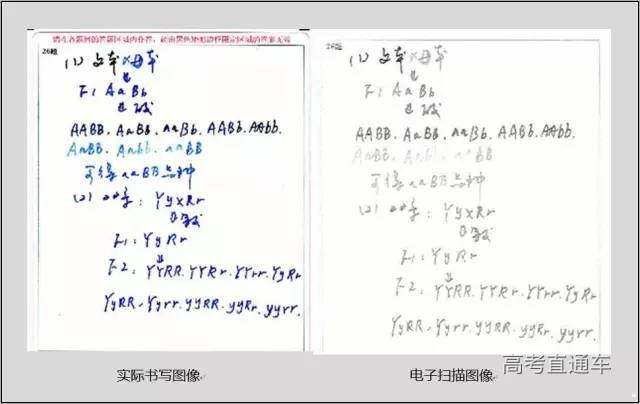 请在各题目的答题区域内作答，超出黑色矩形边框限定区域的答案无效
26题
(1) 父本 × 母本
F1 AaBb
AABB、AaBB、aaBb、AABb、AAbb、
AaBB、Aabb、aaBB
可得aaBB品种
(2) 亲本：YyxRr
F1：YyRr
F2：YYRR、YYRr、YYrr、YyRr
YyRR、Yyrr、yyRR、yyRr、yyrr、
实际书写图像
26题
(1) 父本 × 母本
F1 AaBb
AABB、AaBB、aaBb、AABb、AAbb、
AaBB、Aabb、aaBB
可得aaBB品种
(2) 亲本：YyxRr
F1：YyRr
F2：YYRR、YYRr、YYrr、YyRr
YyRR、Yyrr、yyRR、yyRr、yyrr、
电子扫描图像
高考直通车